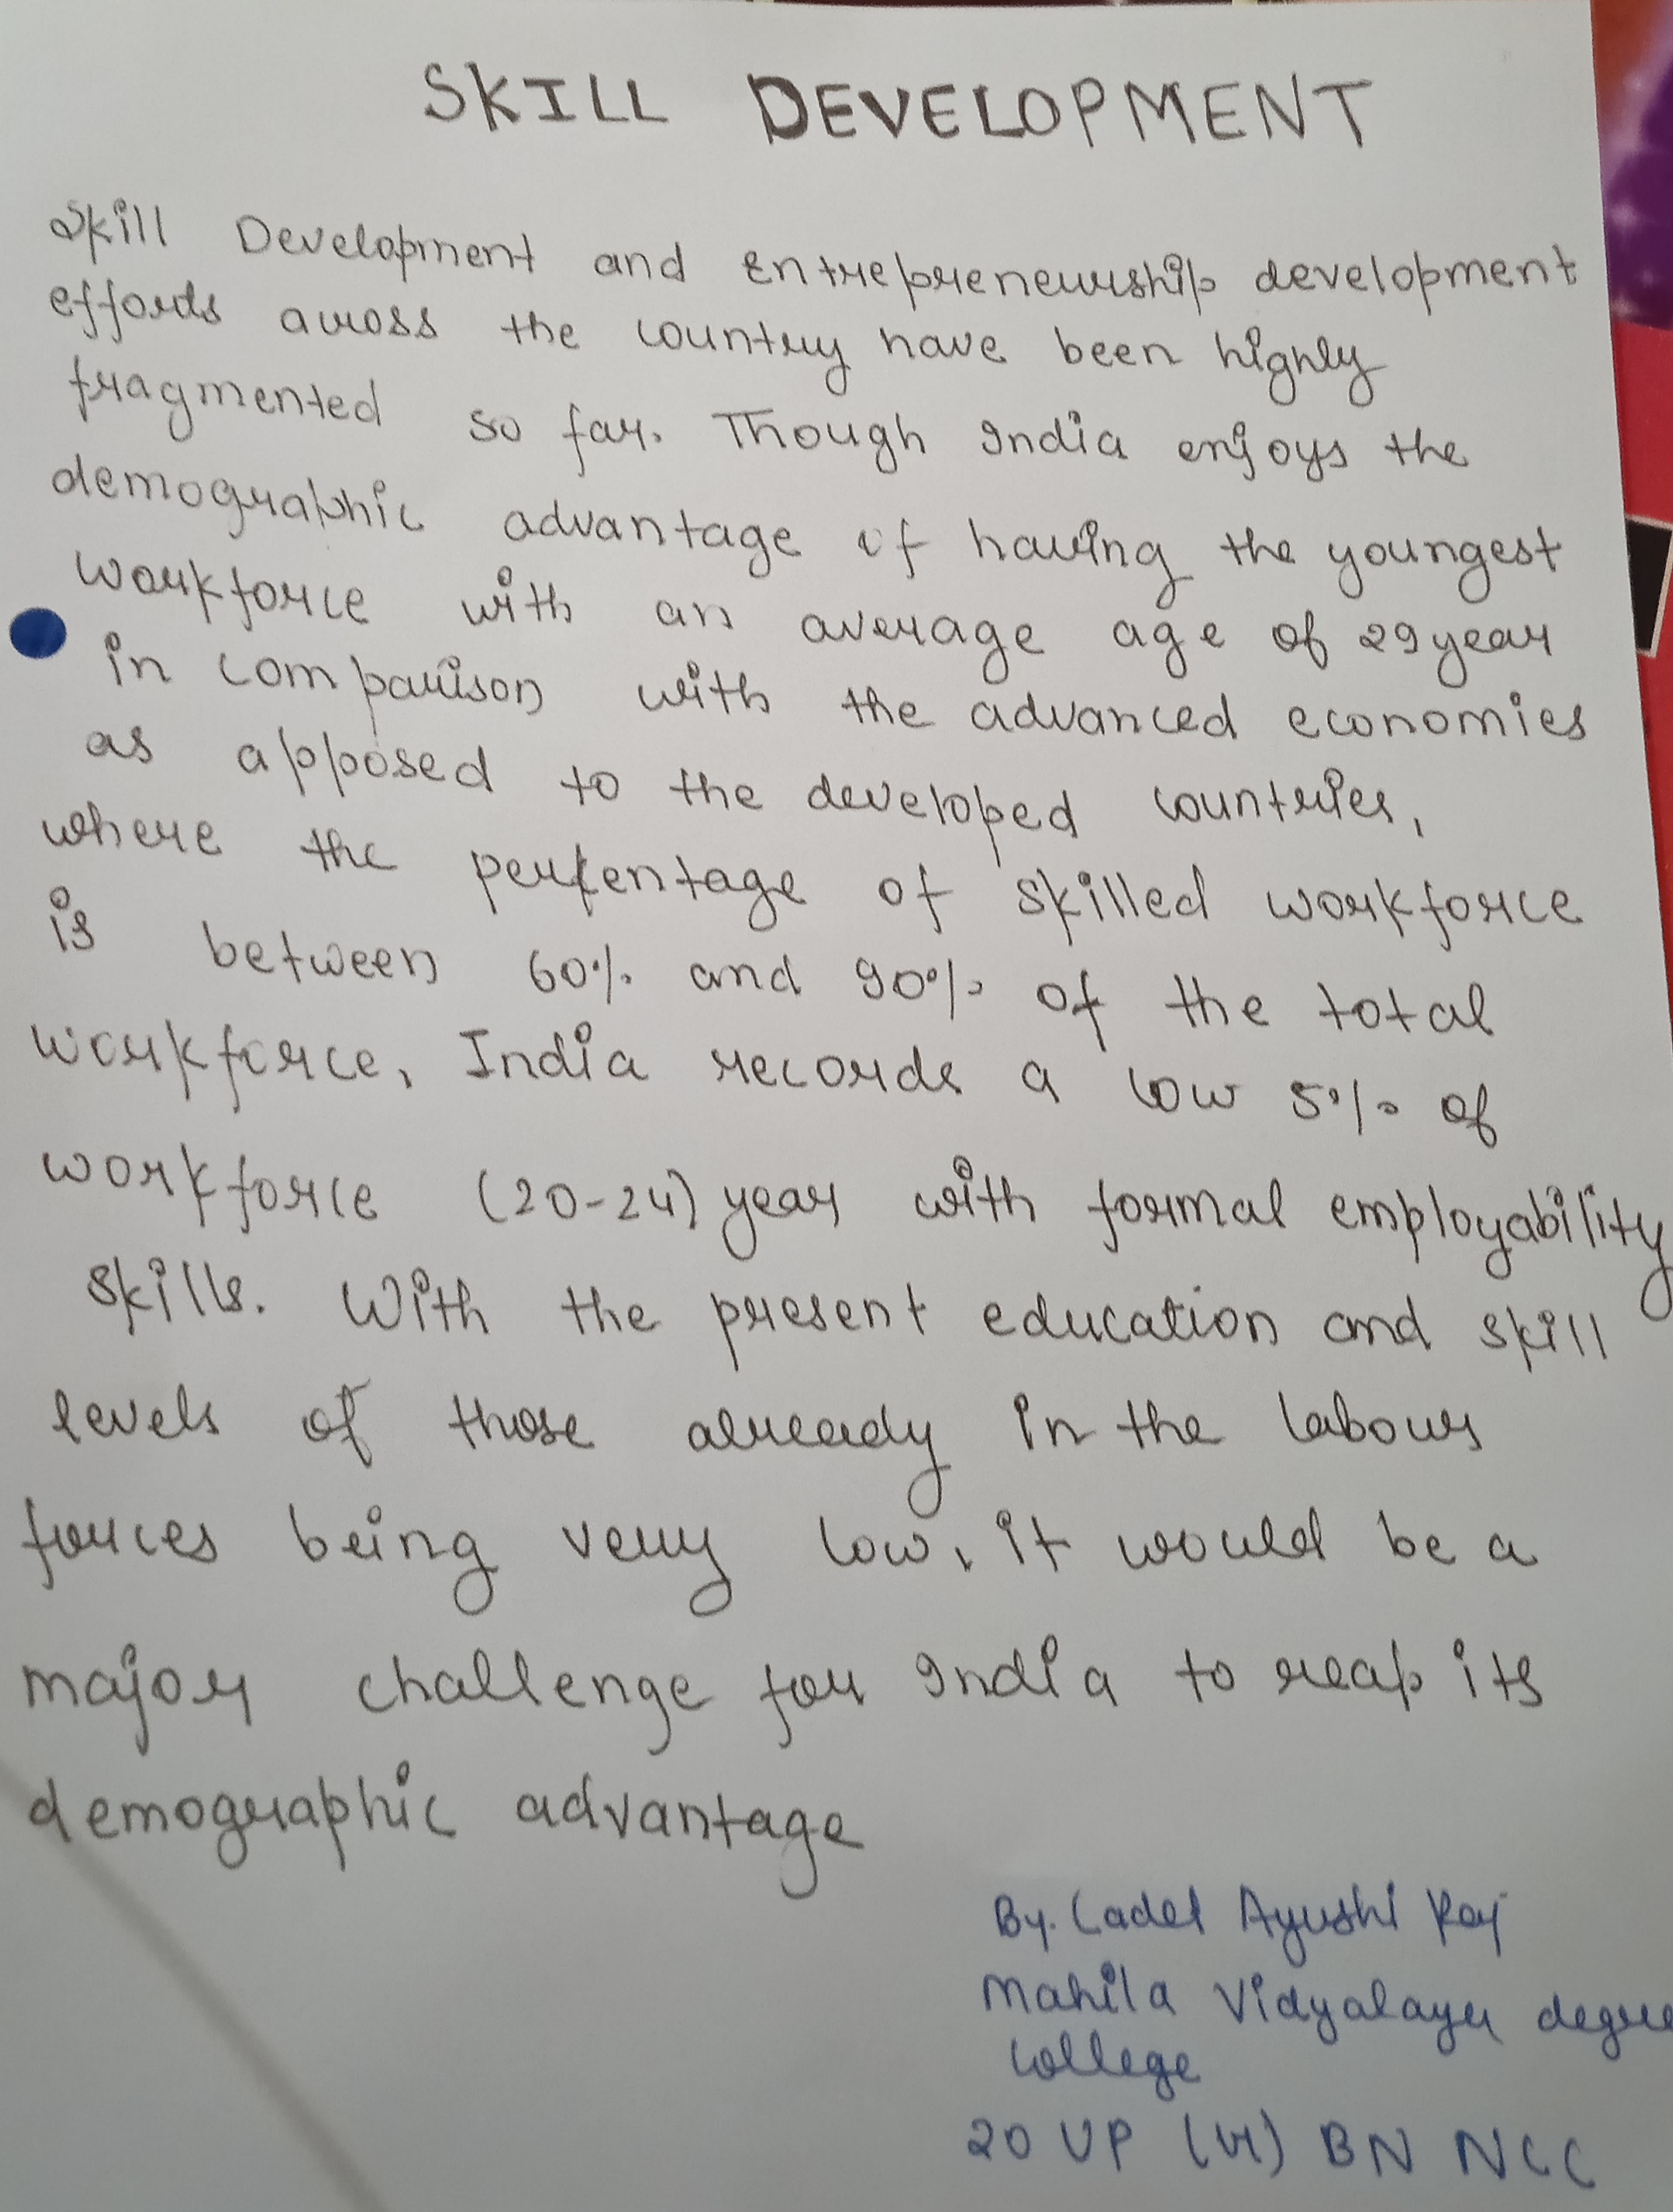 SKILL DEVELOPMENT
Skill Development and Entrepreneurship development
effords across the country have been highly
fragmented so far. Though India enjoys the
demographic advantage of having the youngest
workforce with an average age of 29 year
in comparison with the advanced economies
as apposed to the developed countries,
where the percentage of skilled workforce
is between 60% and 90% of the total
workforce, India records a low 5% of
workforce (20-24) year with formal employability
skills. With the present education and skill
levels of those already in the labour
forces being very low, it would be a
major challenge for India to reap its
demographic advantage
By. Cadet Ayushi Raj
Mahila Vidyalaya degree
college
20 UP (W) BN NCC